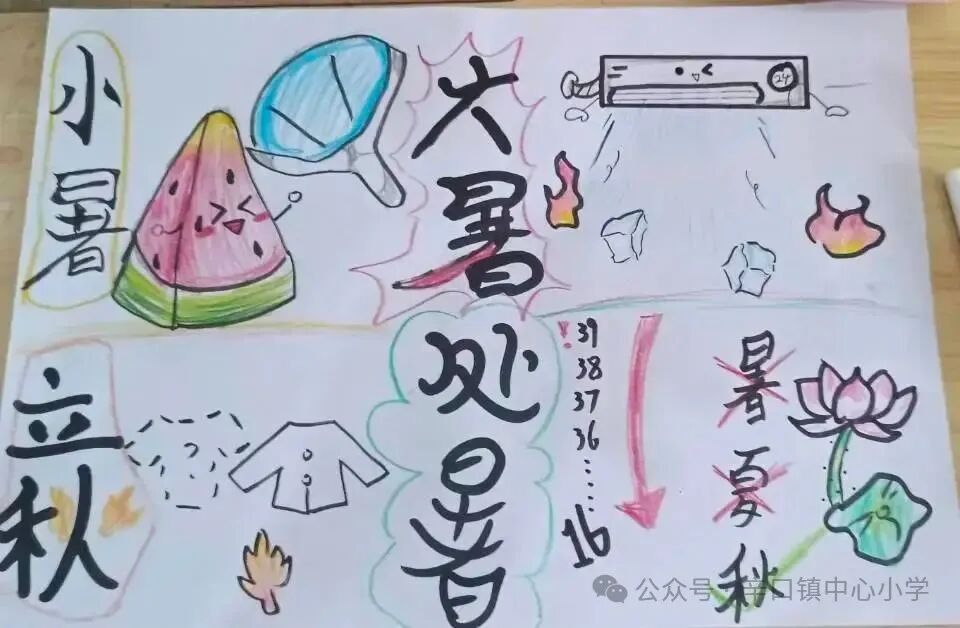 小暑
大暑
24
立秋
处暑
! 39
38
37
36
16
暑
夏
秋
公众号 · 辛口镇中心小学